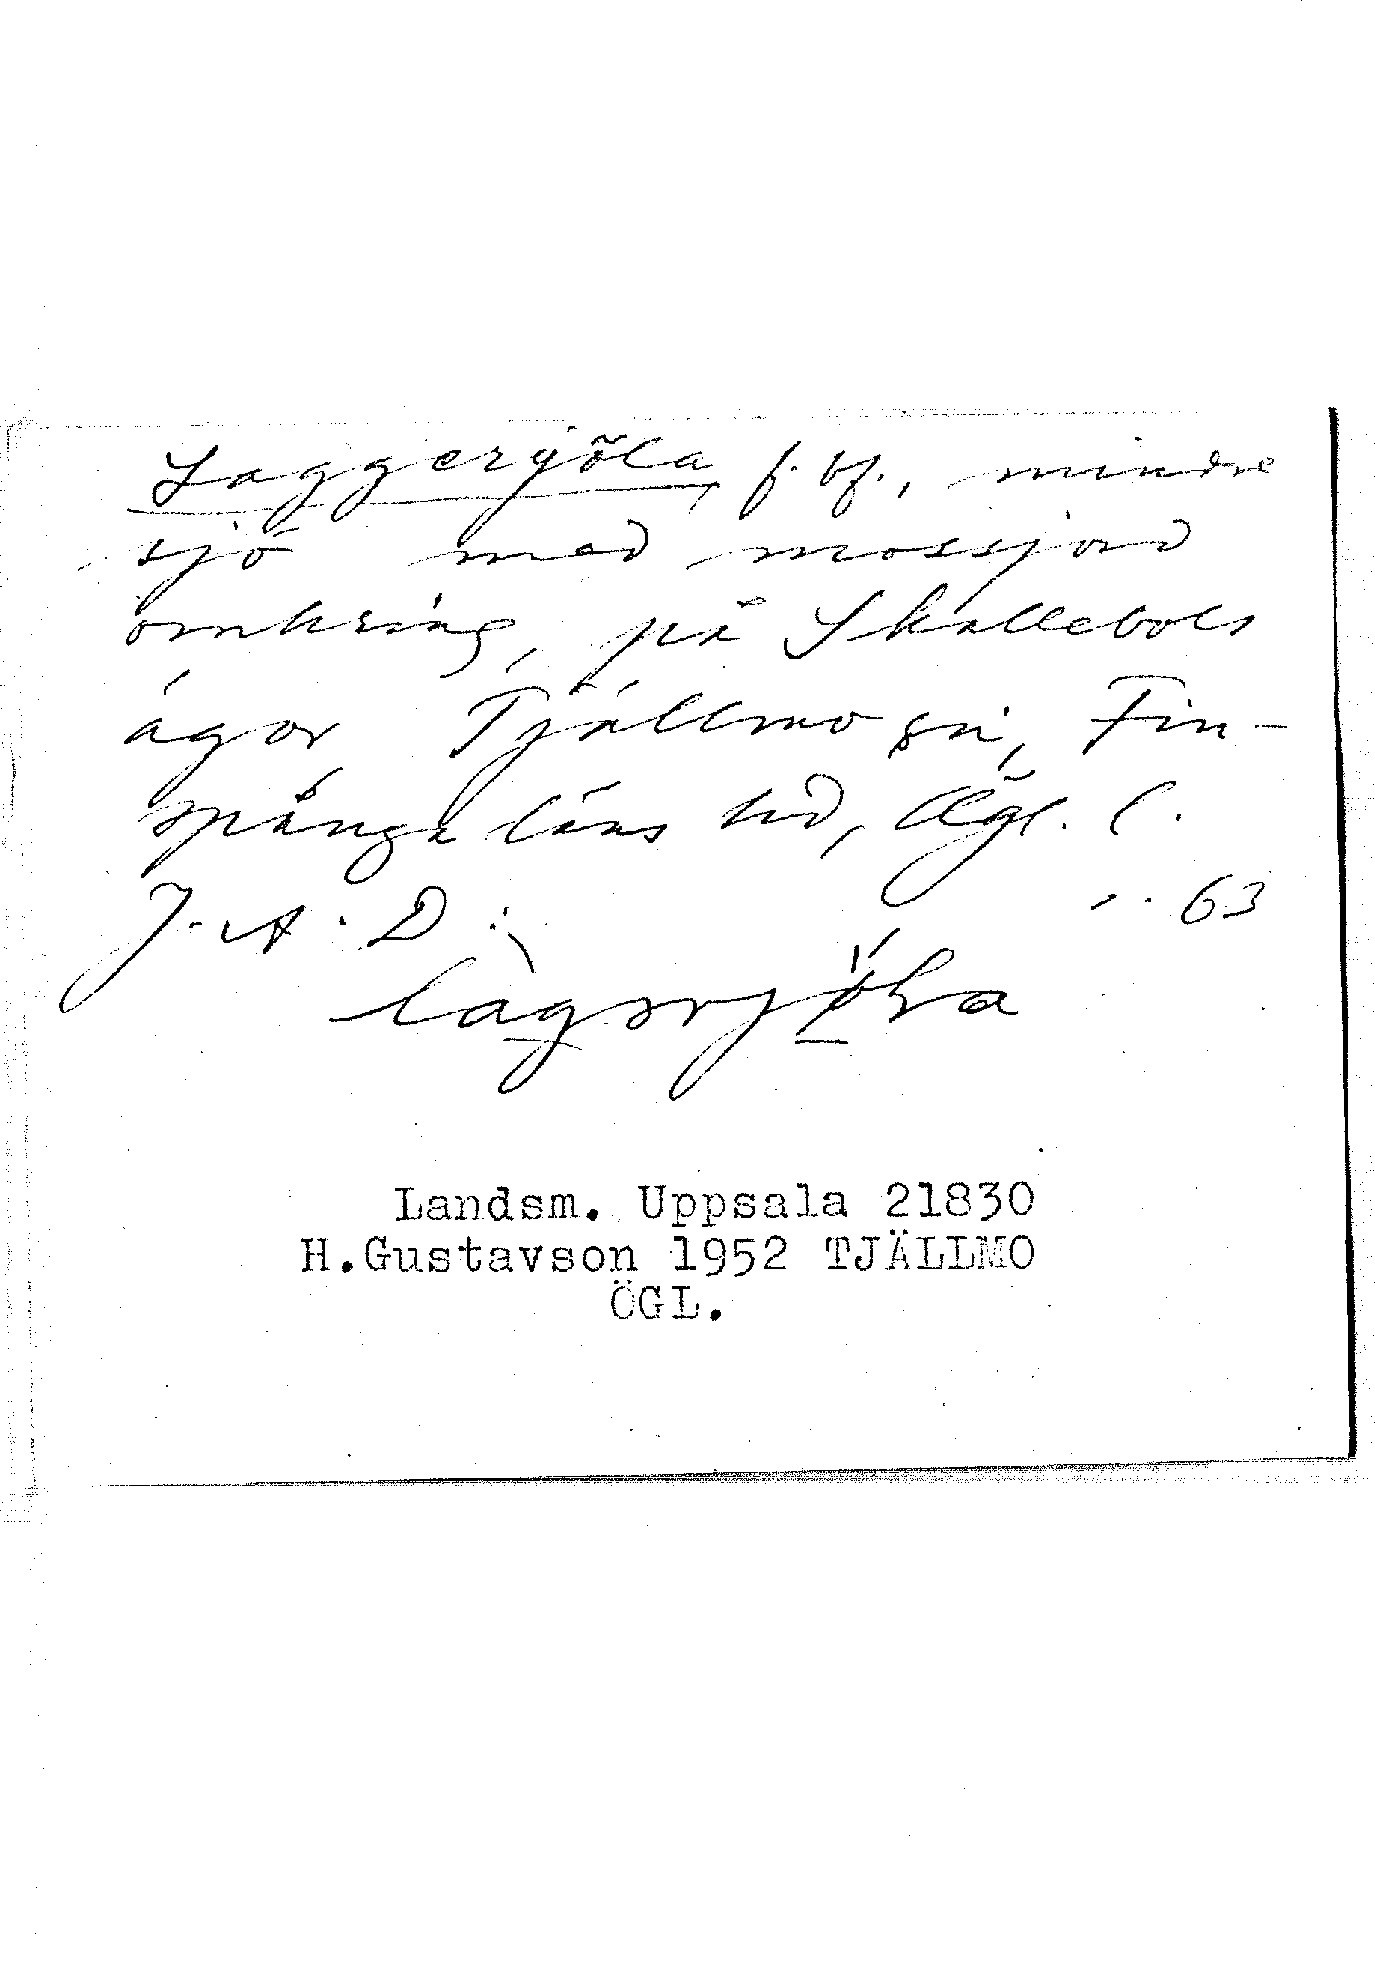 Laggergöla, f. bf., mindre
sjö med mossjord
omkring, på Skallebols
ägor, Tjällmo sn, Fin-
spånga läns hd, Ögl. l.
J. A. D: s. 63
Landsm. Uppsala 21830
H.Gustavson 1952 TJÄLLMO
ÖGL.